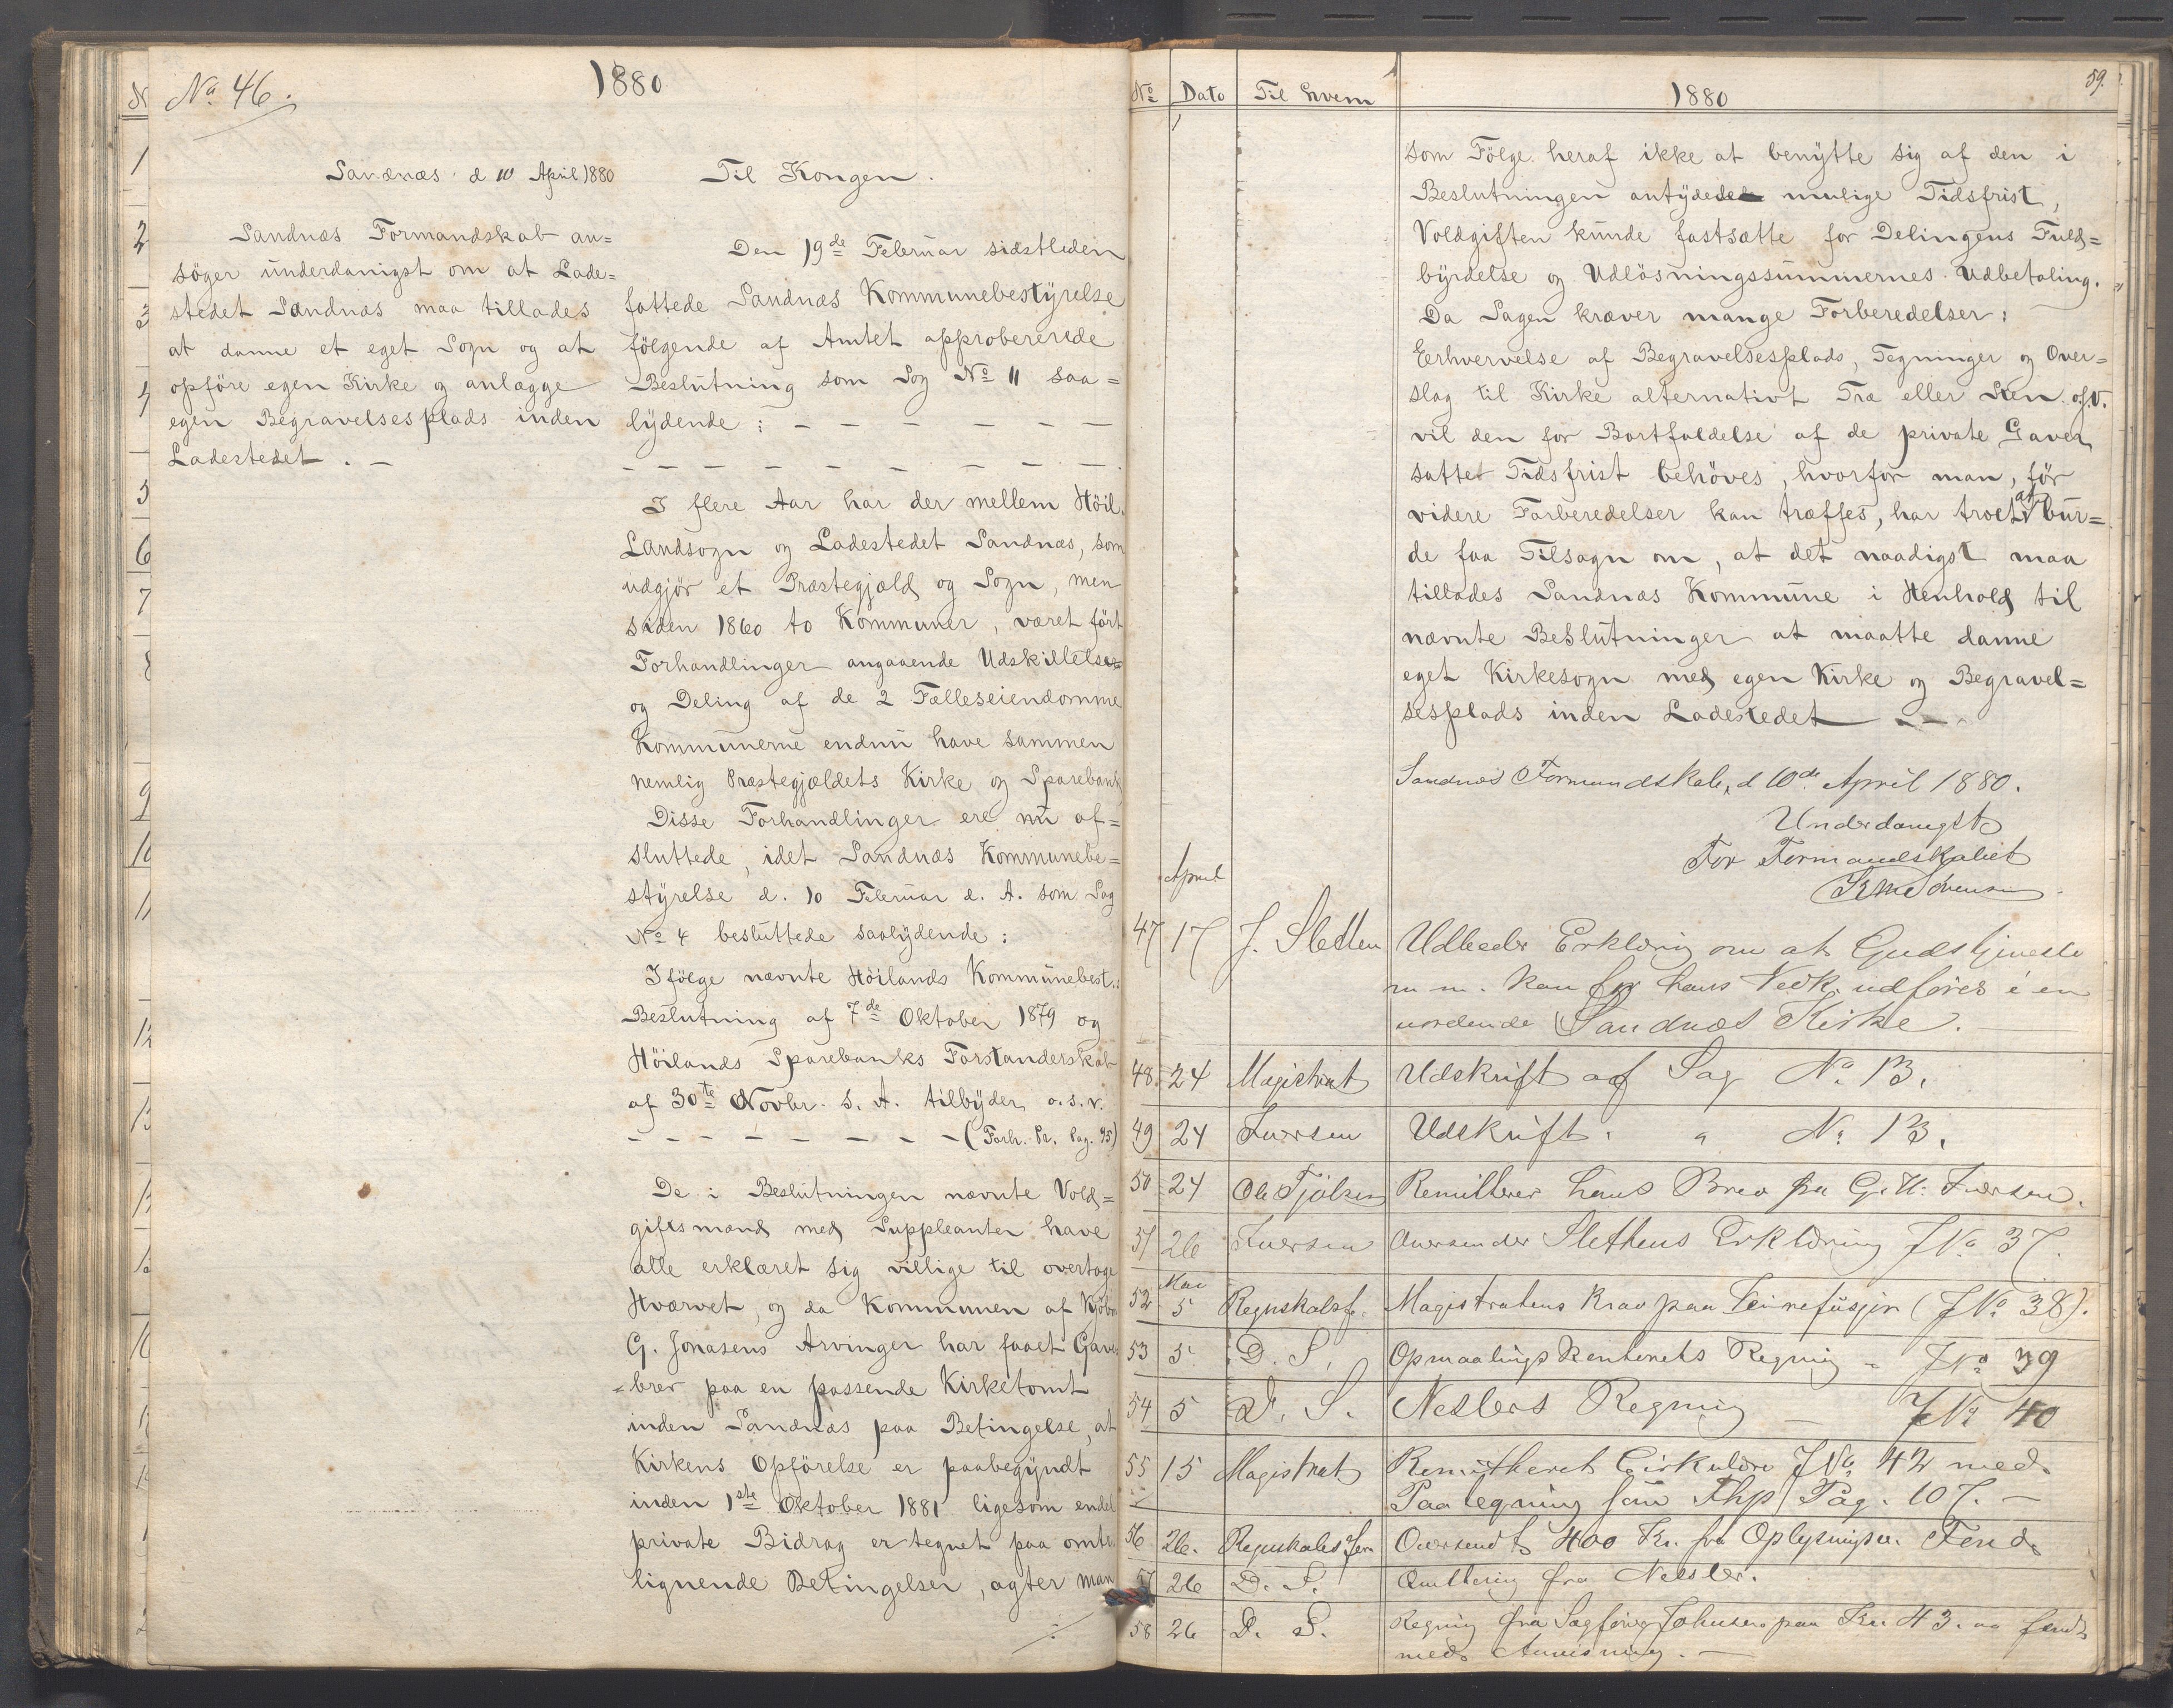 No. 46.
1880
Sandnæs d 10 April 1880
Sandnæs Formandskab an=
söger underdanigst om at Lade=
stedet Sandnæs maa tillades
at danne et eget Sogn og at
opföre egen Kirke og anlægge
egen Begravelsesplads inden
Ladestedet. —
Til Kongen.
Den 19de Februar sidstleden
fattede Sandnæs Kommunebestyrelse
fölgende af Amtet approbererede
Beslutning som Sag No 11 saa=
lydende: — — — — — —
— — — — — — — — —.
I flere Aar har der mellem Höil.
Landsogn og Ladestedet Sandnæs, som
udgjör et Præstegjæld og Sogn, men
siden 1860 to Kommuner, været fört
Forhandlinger angaaende Udskillelse
og Deling af de 2 Fælleseiendomme
Kommunerne endnu have sammen
nemlig Præstegjældets Kirke og Sparebank
Disse Forhandlinger ere nu af=
sluttede, idet Sandnæs Kommunebe=
styrelse d. 10 Februar d. A. som Sag
No 4 besluttede saalydende:
Ifölge nævnte Höilands Kommunebest.:
Beslutning af 7de Oktober 1879 og
Höilands Sparebanks Forstanderskab
af 30te Novbr. s. A. tilbyder o.s.v.
— — — — — — — — (Forh. Pr. Pag. 95)
De i Beslutningen nævnte Vold=
giftsmænd med Suppleanter have
alle erklæret sig villige til overtage
Hvervet, og da Kommunen af Kjöbm
G. Jonasens Arvinger har faaet Gave
=brev paa en passende Kirketomt
inden Sandnæs paa Betingelse, at
Kirkens Opförelse er paabegyndt
inden 1ste Oktober 1881 ligesom endel
private Bidrag er tegnet paa omtr
lignende Betingelser, agter man
No Dato Til hvem 1880 59.
som Fölge heraf ikke at benytte sig af den i
Beslutningen antydede mulige Tidsfrist,
Voldgiften kunde fastsætte for Delingens Fuld=
byrdelse og Udlösningssummernes Udbetaling.
Da Sagen kræver mange Forberedelser:
Eerhvervelse af Begravelsesplads, Tegninger og Over=
slag til Kirke alternativt Træ eller Sten o.s.v.
vil den for Bortfaldelse af de private Gaver
satte Tidsfrist behöves, hvorfor man, för
videre Forberedelser kan træffes, har troet at bur=
de faa Tilsagn om, at det naadigst maa
tillades Sandnæs Kommune i Henhold til
nævnte Beslutninger at maatte danne
eget Kirkesogn med egen Kirke og Begravel=
sesplads inden Ladestedet —
Sandnæs Formandskab, d 10de April 1880.
Underdanigst
For Formandskabet
April
47 17 J. Sletten Udbeder Erklæring om at Gudstjeneste
m.m. kan for hans Vedk. udföres i en
vordende Sandnæs Kirke.
48. 24 Magistrat Udskrift af Sag No 13.
49 24 Iversen Udskrift " " No 13.
50 24 Ole Tjölsen Remitterer hans Brev fra G. H. Iversen.
51 26 Iversen Oversender Slethens Erklæring JNo 37.
Mai
52 5 Regnskabsf. Magistratens Krav paa (JNo 38).
53 5 D. S. Opmaalings Kontorets Regning — JNo 39
54 5 D. S. Neslers Regning — JNo 40
55 15 Magistrat Remitteret Cirkulære JNo 42 med
Paategning Pag. 107. —
56 26. Regnskabsför. Oversendt 400 Kr. fra Fond
57 26 D. S. Qvittering fra Nesler.
58 26 D. S. Regning fra Sagförer Johnsen paa Kr. 43.
med Anvisning. —